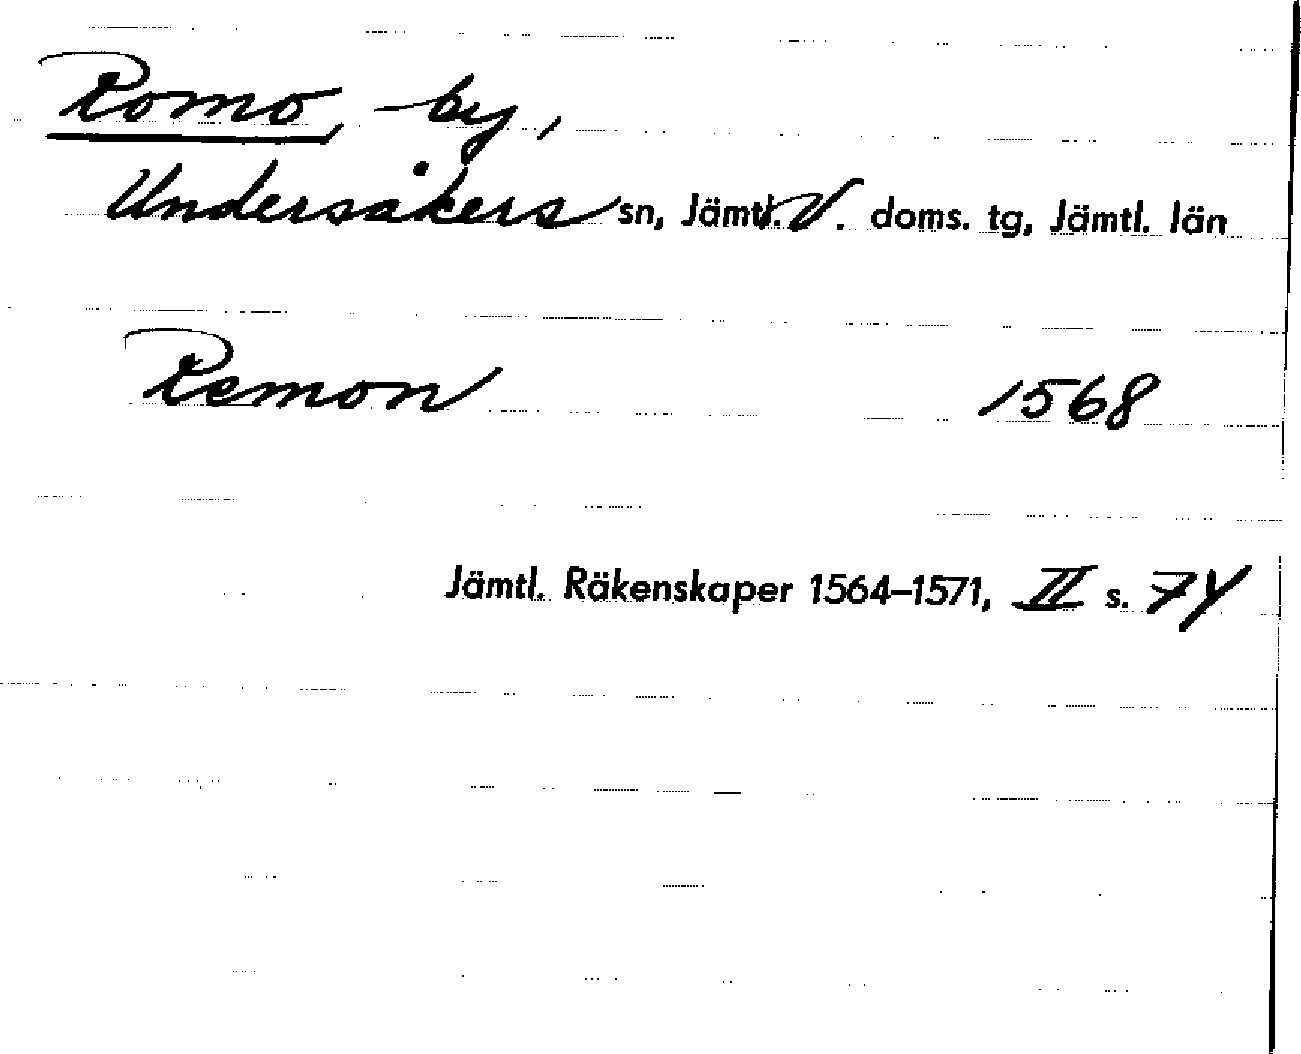 Romo, by,
Undersåkers sn, Jämtl. V. doms. tg, Jämtl. län
Remon 1568
Jämtl. Räkenskaper 1564–1571, II s. 74